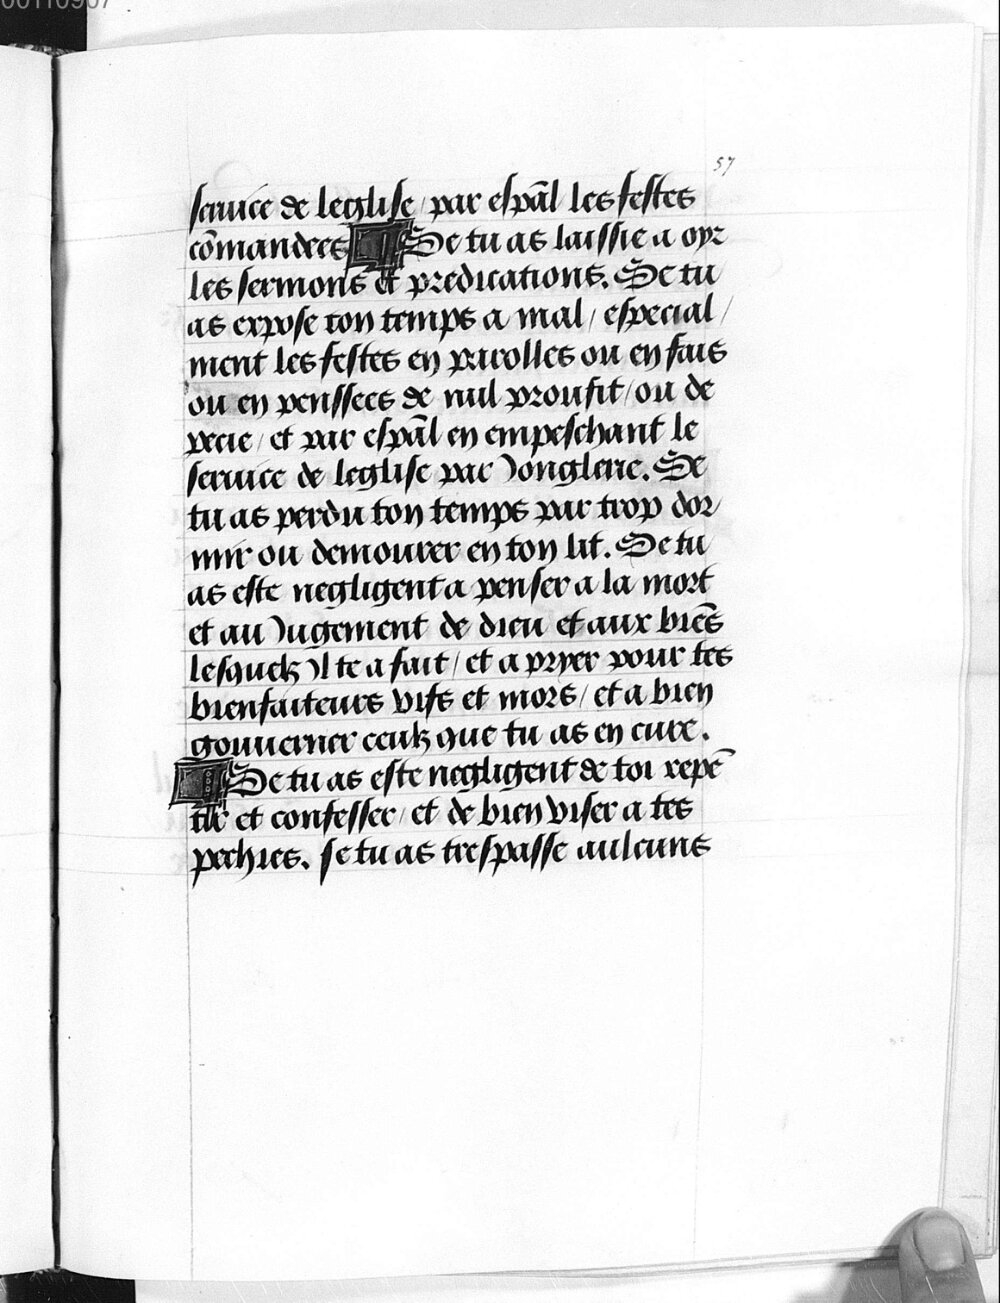 00110907
57
seruice de leglise / par esp̄al les festes
cōmandees Se tu as laissie a oyr
les sermons et predications. Se tu
as expose ton temps a mal / especial /
ment les festes en parolles ou en fais
ou en penssees de nul proufit / ou de
pecie / et par esp̄al en empeschant le
seruice de leglise par Jonglerie. Se
tu as perdu ton temps par trop dor
mir ou demourer en ton lit. Se tu
as este negligent a penser a la mort
et au Jugement de dieu et aux biēs
lesquelz Jl te a fait / et a pryer pour tes
bienfaiteurs vifs et mors / et a bien
gouuerner ceulz que tu as en cure.
Se tu as este negligent de toi repē
tir et confesser / et de bien viser a tes
pechies. se tu as trespasse aulcuns